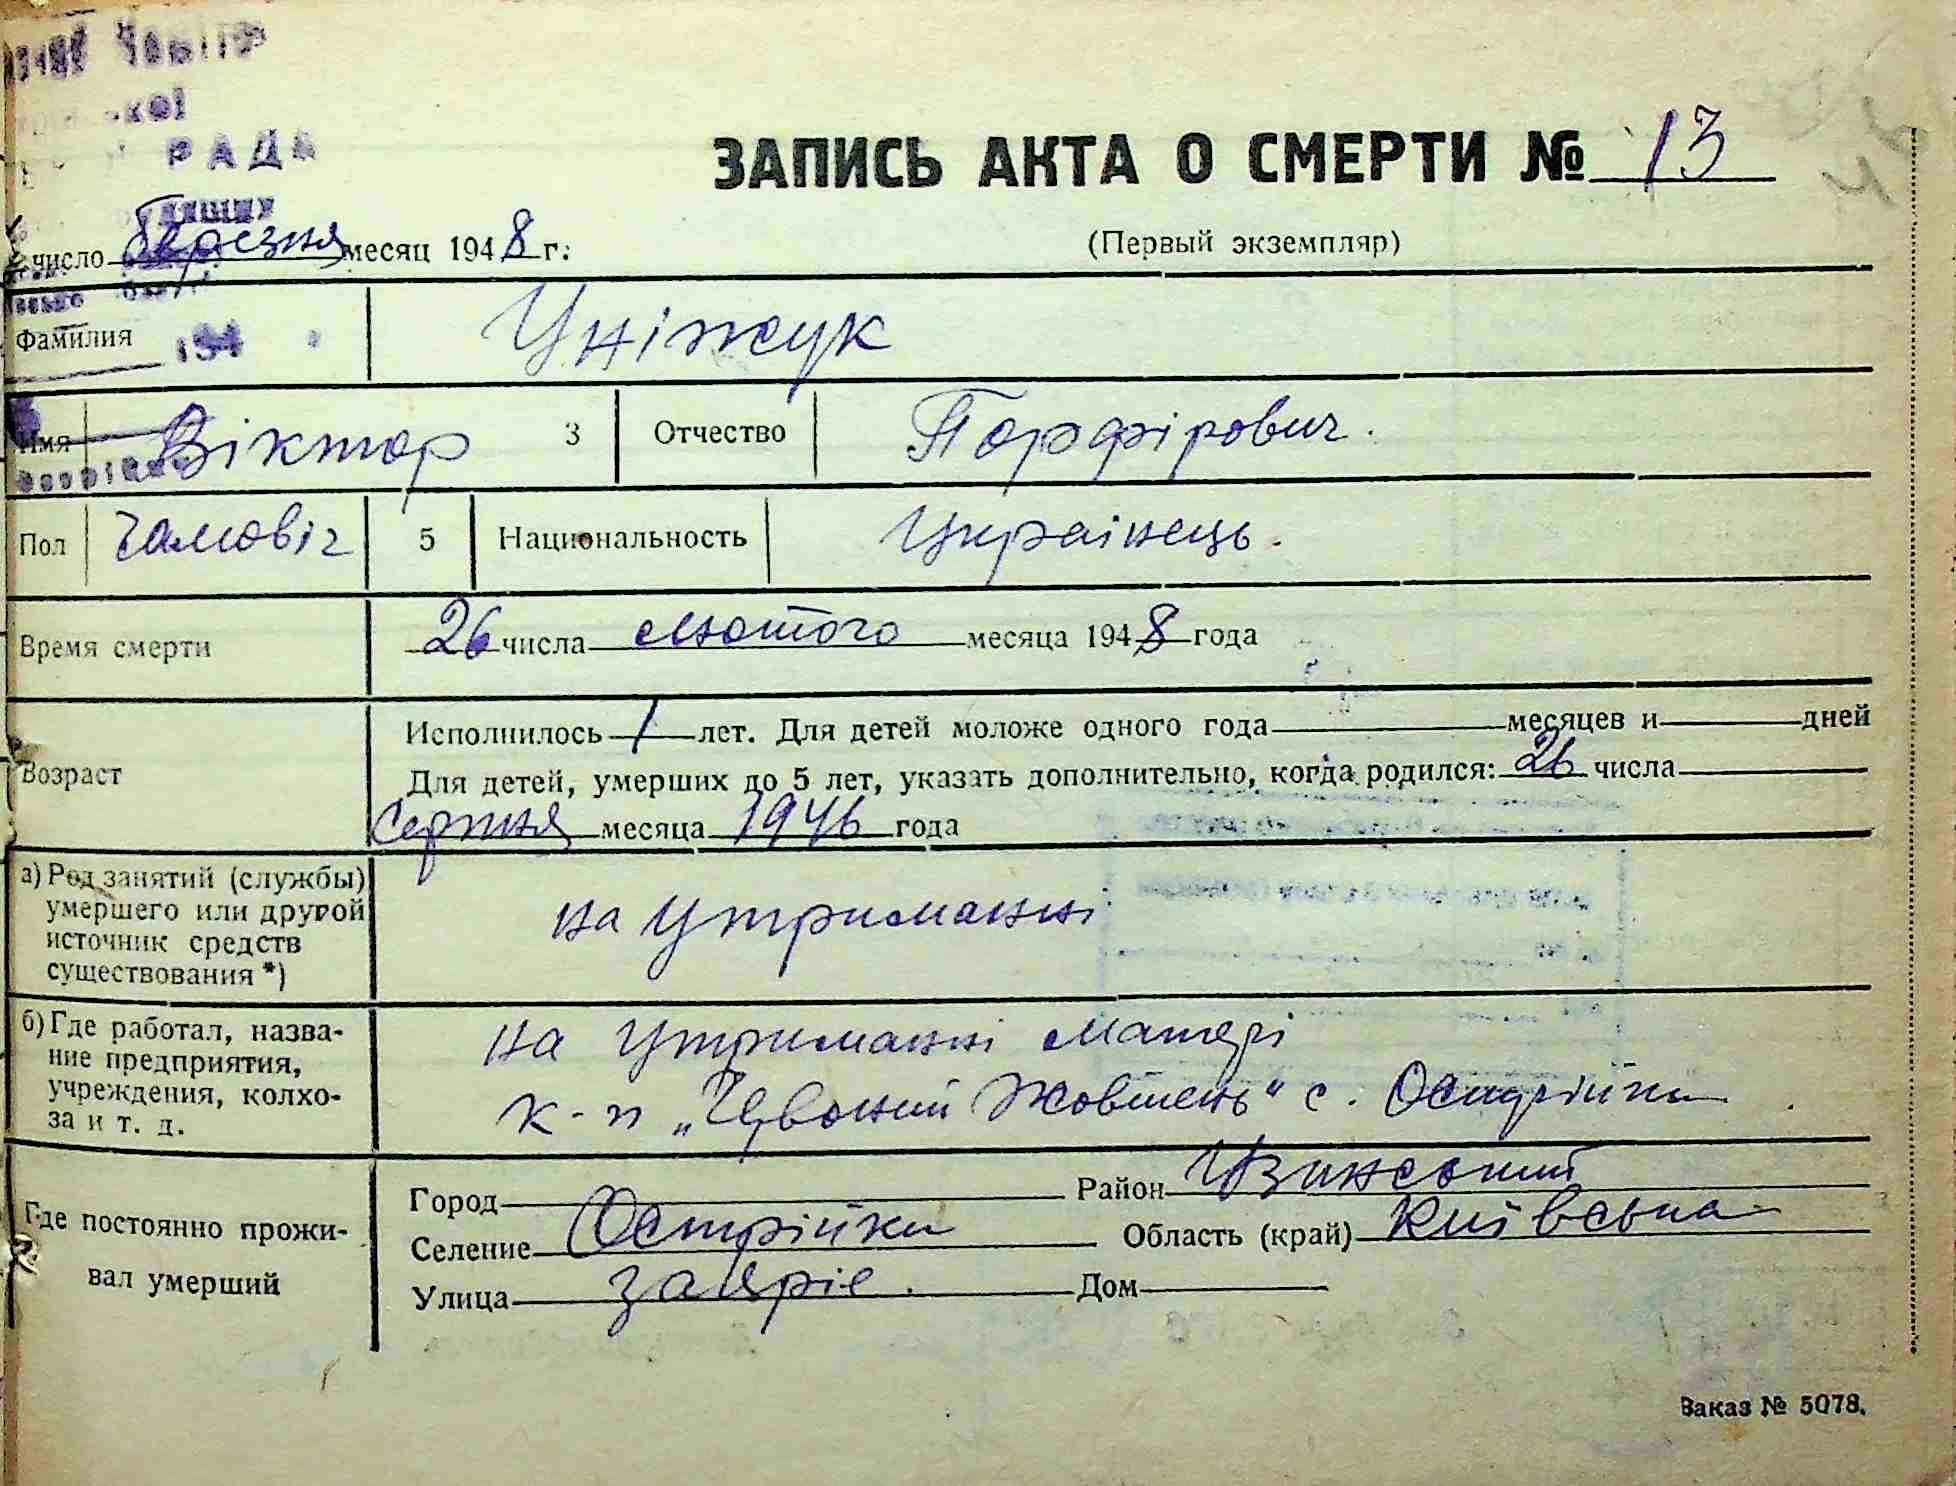 РАДА
ЗАПИСЬ АКТА О СМЕРТИ № 13
число березня месяц 1948 г.
(Первый экземпляр)
Фамилия Уніжук
194
Имя Віктор 3 Отчество Порфірович.
Пол чаловіч 5 Национальность Українець.
Время смерти 26 числа лютого месяца 1948 года
Исполнилось 1 лет. Для детей моложе одного года месяцев и дней
Возраст
Для детей, умерших до 5 лет, указать дополнительно, когда родился: 26 числа
серпня месяца 1946 года
а) Род занятий (службы)
умершего или другой
источник средств
существования *)
на утриманні
б) Где работал, назва-
ние предприятия,
учреждения, колхо-
за и т. д.
на утриманні матері
к-п „Червоний Жовтень" с. Острійки
Где постоянно прожи-
вал умерший
Город Район Узинський
Селение Острійки Область (край) Київська
Улица Дом
Заказ № 5078.